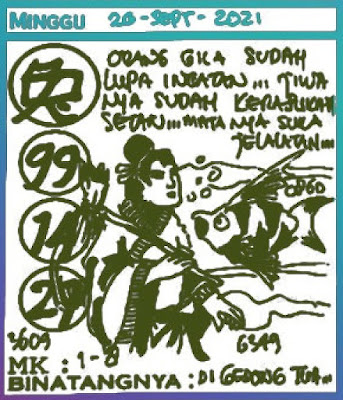 MINGGU 26-SEPT-2021
ORANG GILA SUDAH
LUPA INGATAN... JIWA
NYA SUDAH KERASUKAN
SETAN... MATA NYA SUKA
JELALATAN...
兔
99
14
3609
6349
MK : 1-8
BINATANGNYA : DI GEDONG TUA...